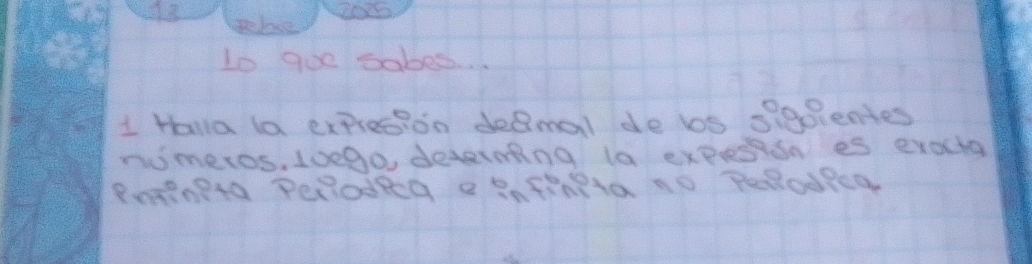 13 Febre 2025
Lo que sabes...
1 Halla la expresión decimal de los siguientes
números. Luego, determina la expresión es exacta
infinita periodica e infinita no periodica.